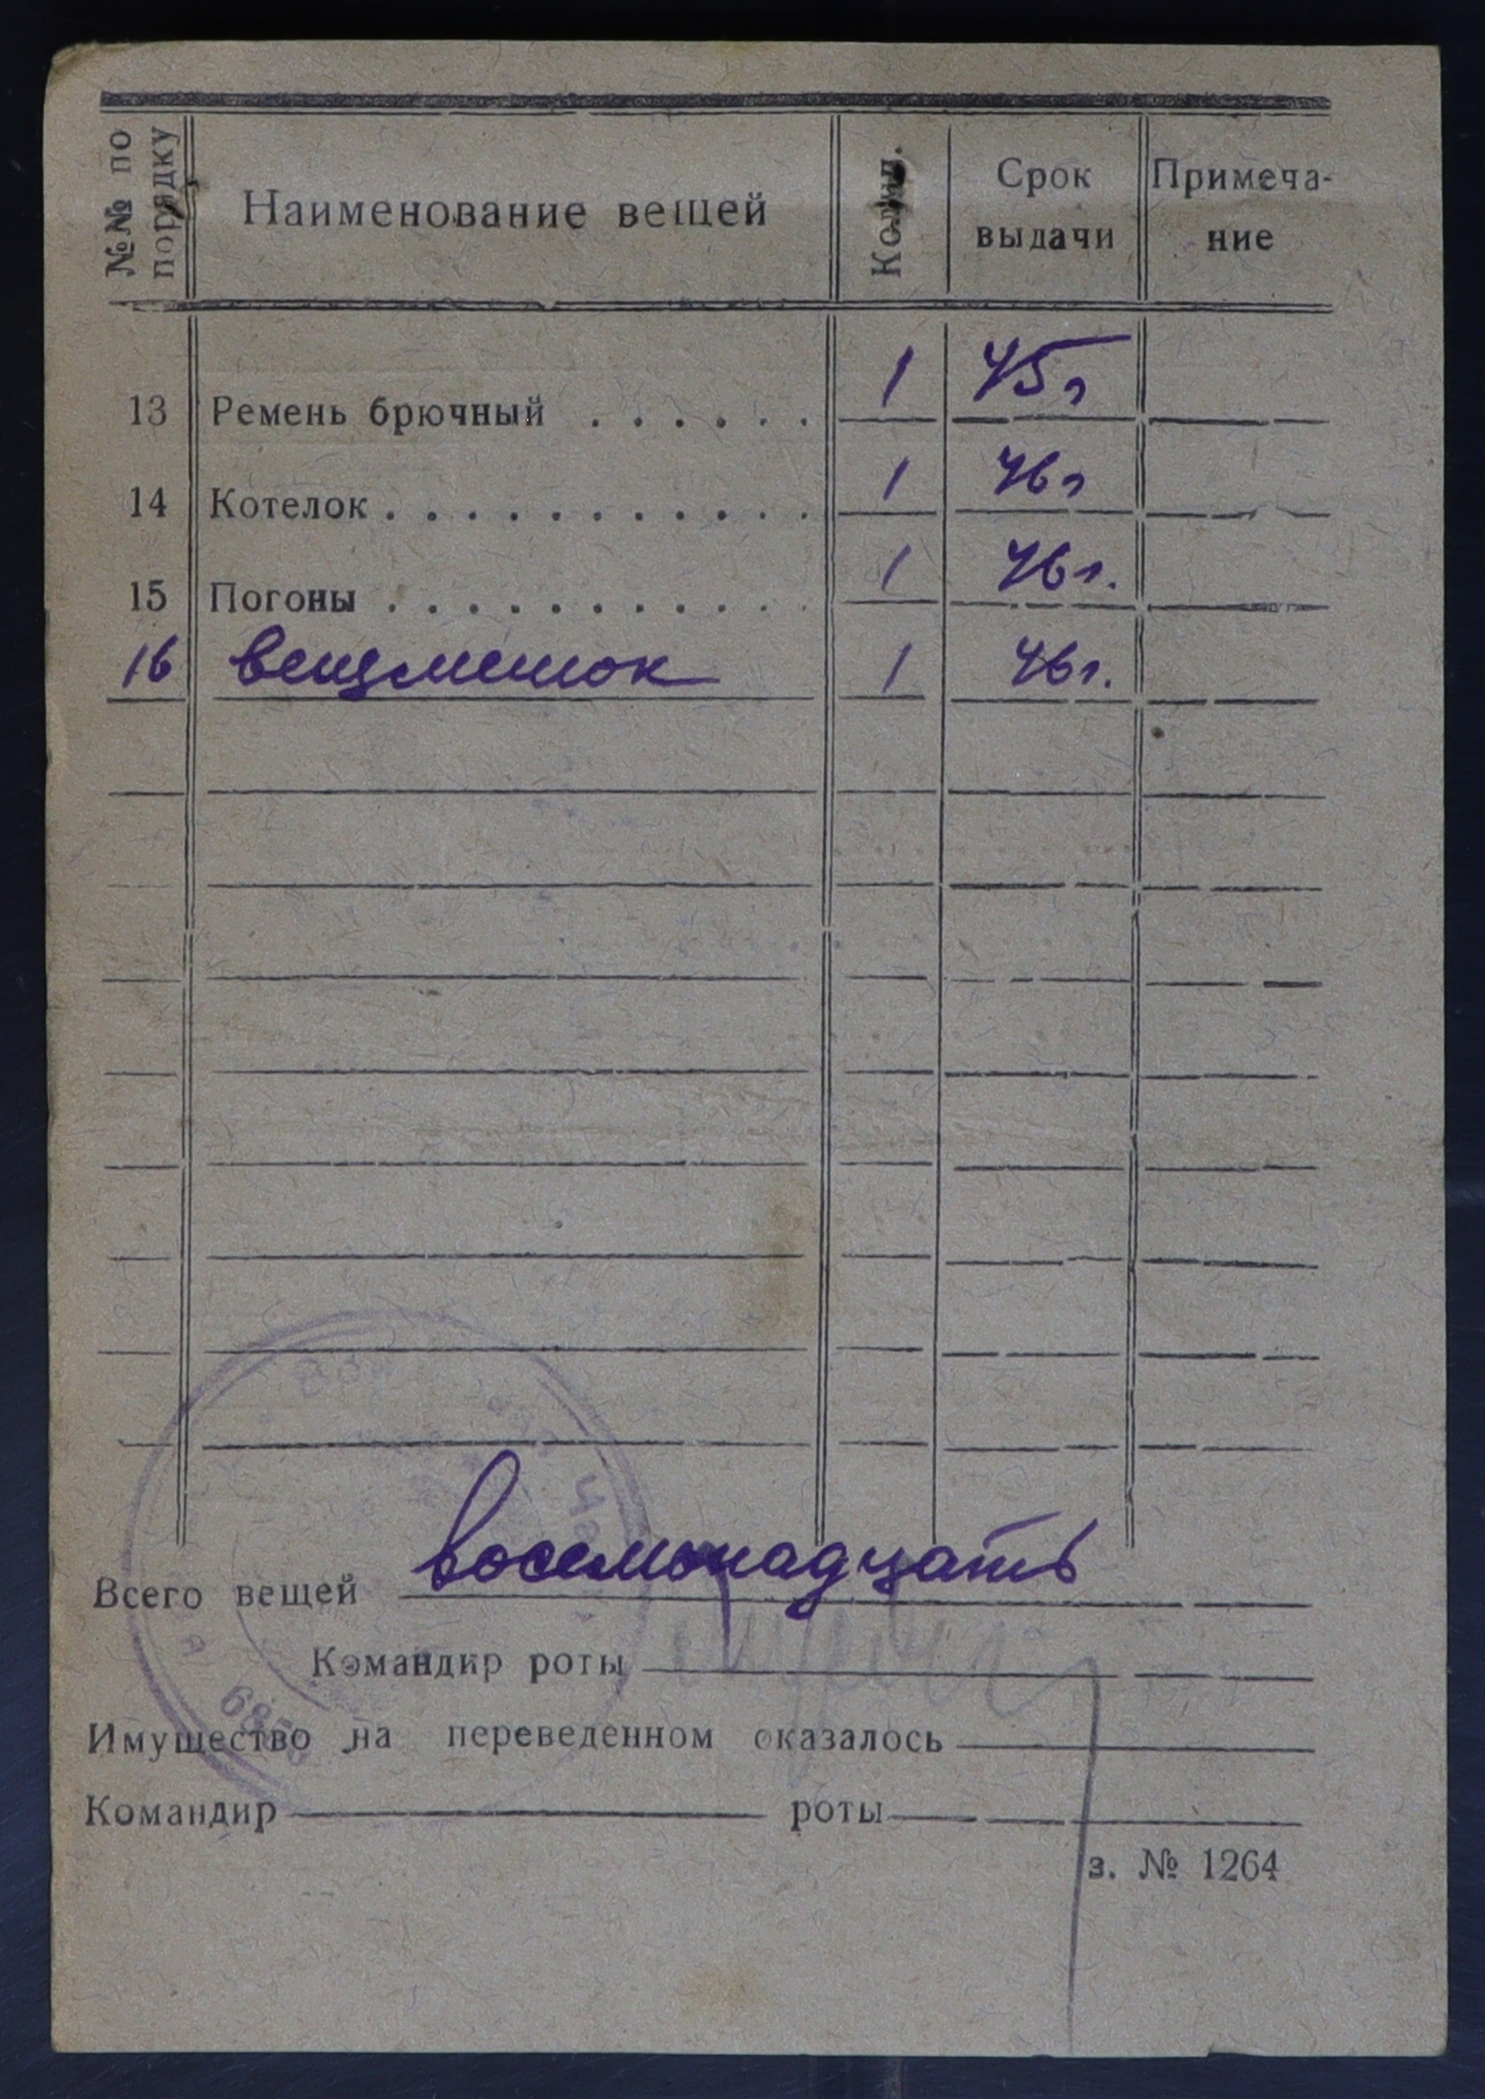 №№ по порядку Наименование вещей Колич. Срок выдачи Примеча-ние
13 Ремень брючный . . . . . . 1 45г
14 Котелок . . . . . . . . . . . . 1 46г
15 Погоны . . . . . . . . . . . . 1 46г.
16 вещмешок 1 46г.
Всего вещей восемьнадцать
Командир роты
Имущество на переведенном оказалось
Командир роты
з. № 1264